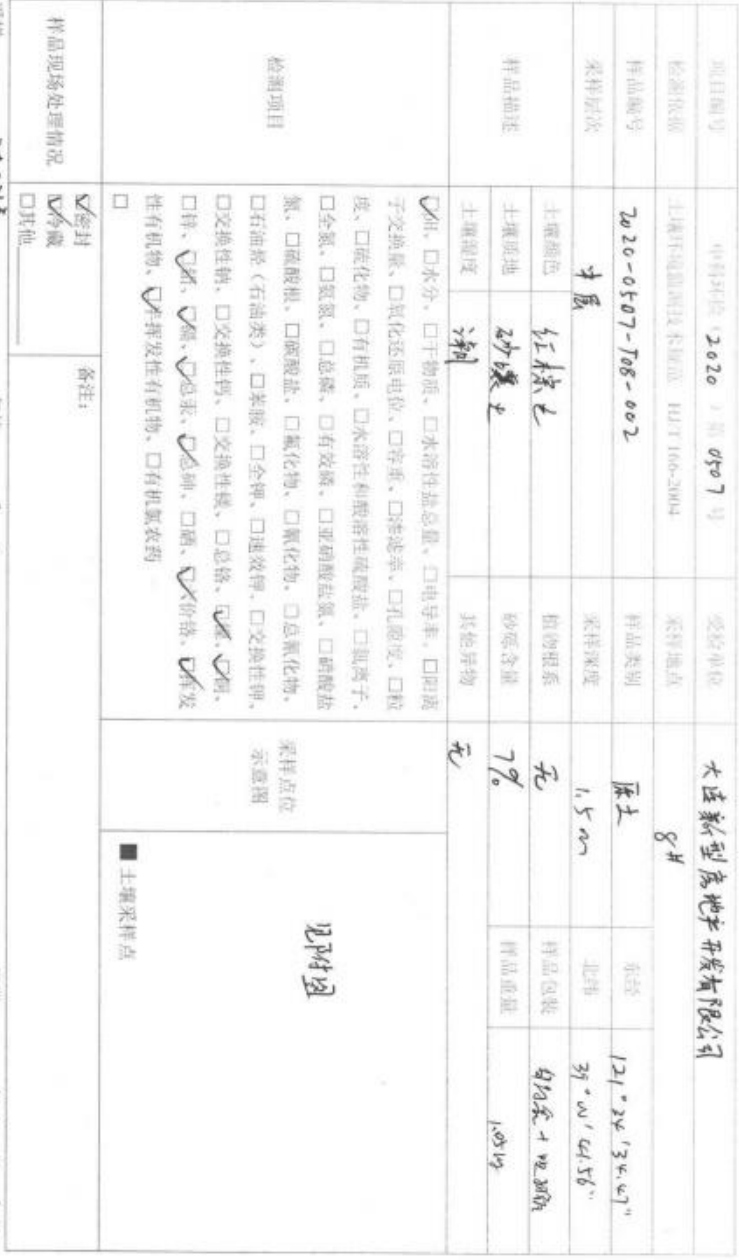 项目编号 中科环检（2020）第 0507 号 受检单位 大连新型房地产开发有限公司
检测依据 土壤环境监测技术规范 HJ/T 166-2004 采样地点 8#
样品编号 2020-0507-T08-002 样品类别 原土 东经 121°24′34.47″
采样层次 中层 采样深度 1.5m 北纬 39° ′41.56″
样品描述 土壤颜色 红棕色 植物根系 无 样品包装
土壤质地 砂壤土 砂砾含量 7% 样品重量 1.05kg
土壤湿度 潮 其他异物 无
检测项目
☑pH、□水分、□干物质、□水溶性盐总量、□电导率、□阳离
子交换量、□氧化还原电位、□容重、□渗滤率、□孔隙度、□粒
度、□硫化物、□有机质、□水溶性和酸溶性硫酸盐、□氯离子、
□全氮、□氨氮、□总磷、□有效磷、□亚硝酸盐氮、□硝酸盐
氮、□硫酸根、□碳酸盐、□氟化物、□氰化物、□总氟化物、
□石油烃（石油类）、□苯胺、□全钾、□速效钾、□交换性钾、
□交换性钠、□交换性钙、□交换性镁、□总铬、☑镍、☑铜、
□锌、☑铅、☑镉、☑总汞、☑总砷、□硒、☑六价铬、☑挥发
性有机物、☑半挥发性有机物、□有机氯农药
□
采样点位
示意图
见附图
■ 土壤采样点
样品现场处理情况
☑密封
☑冷藏
□其他
备注：